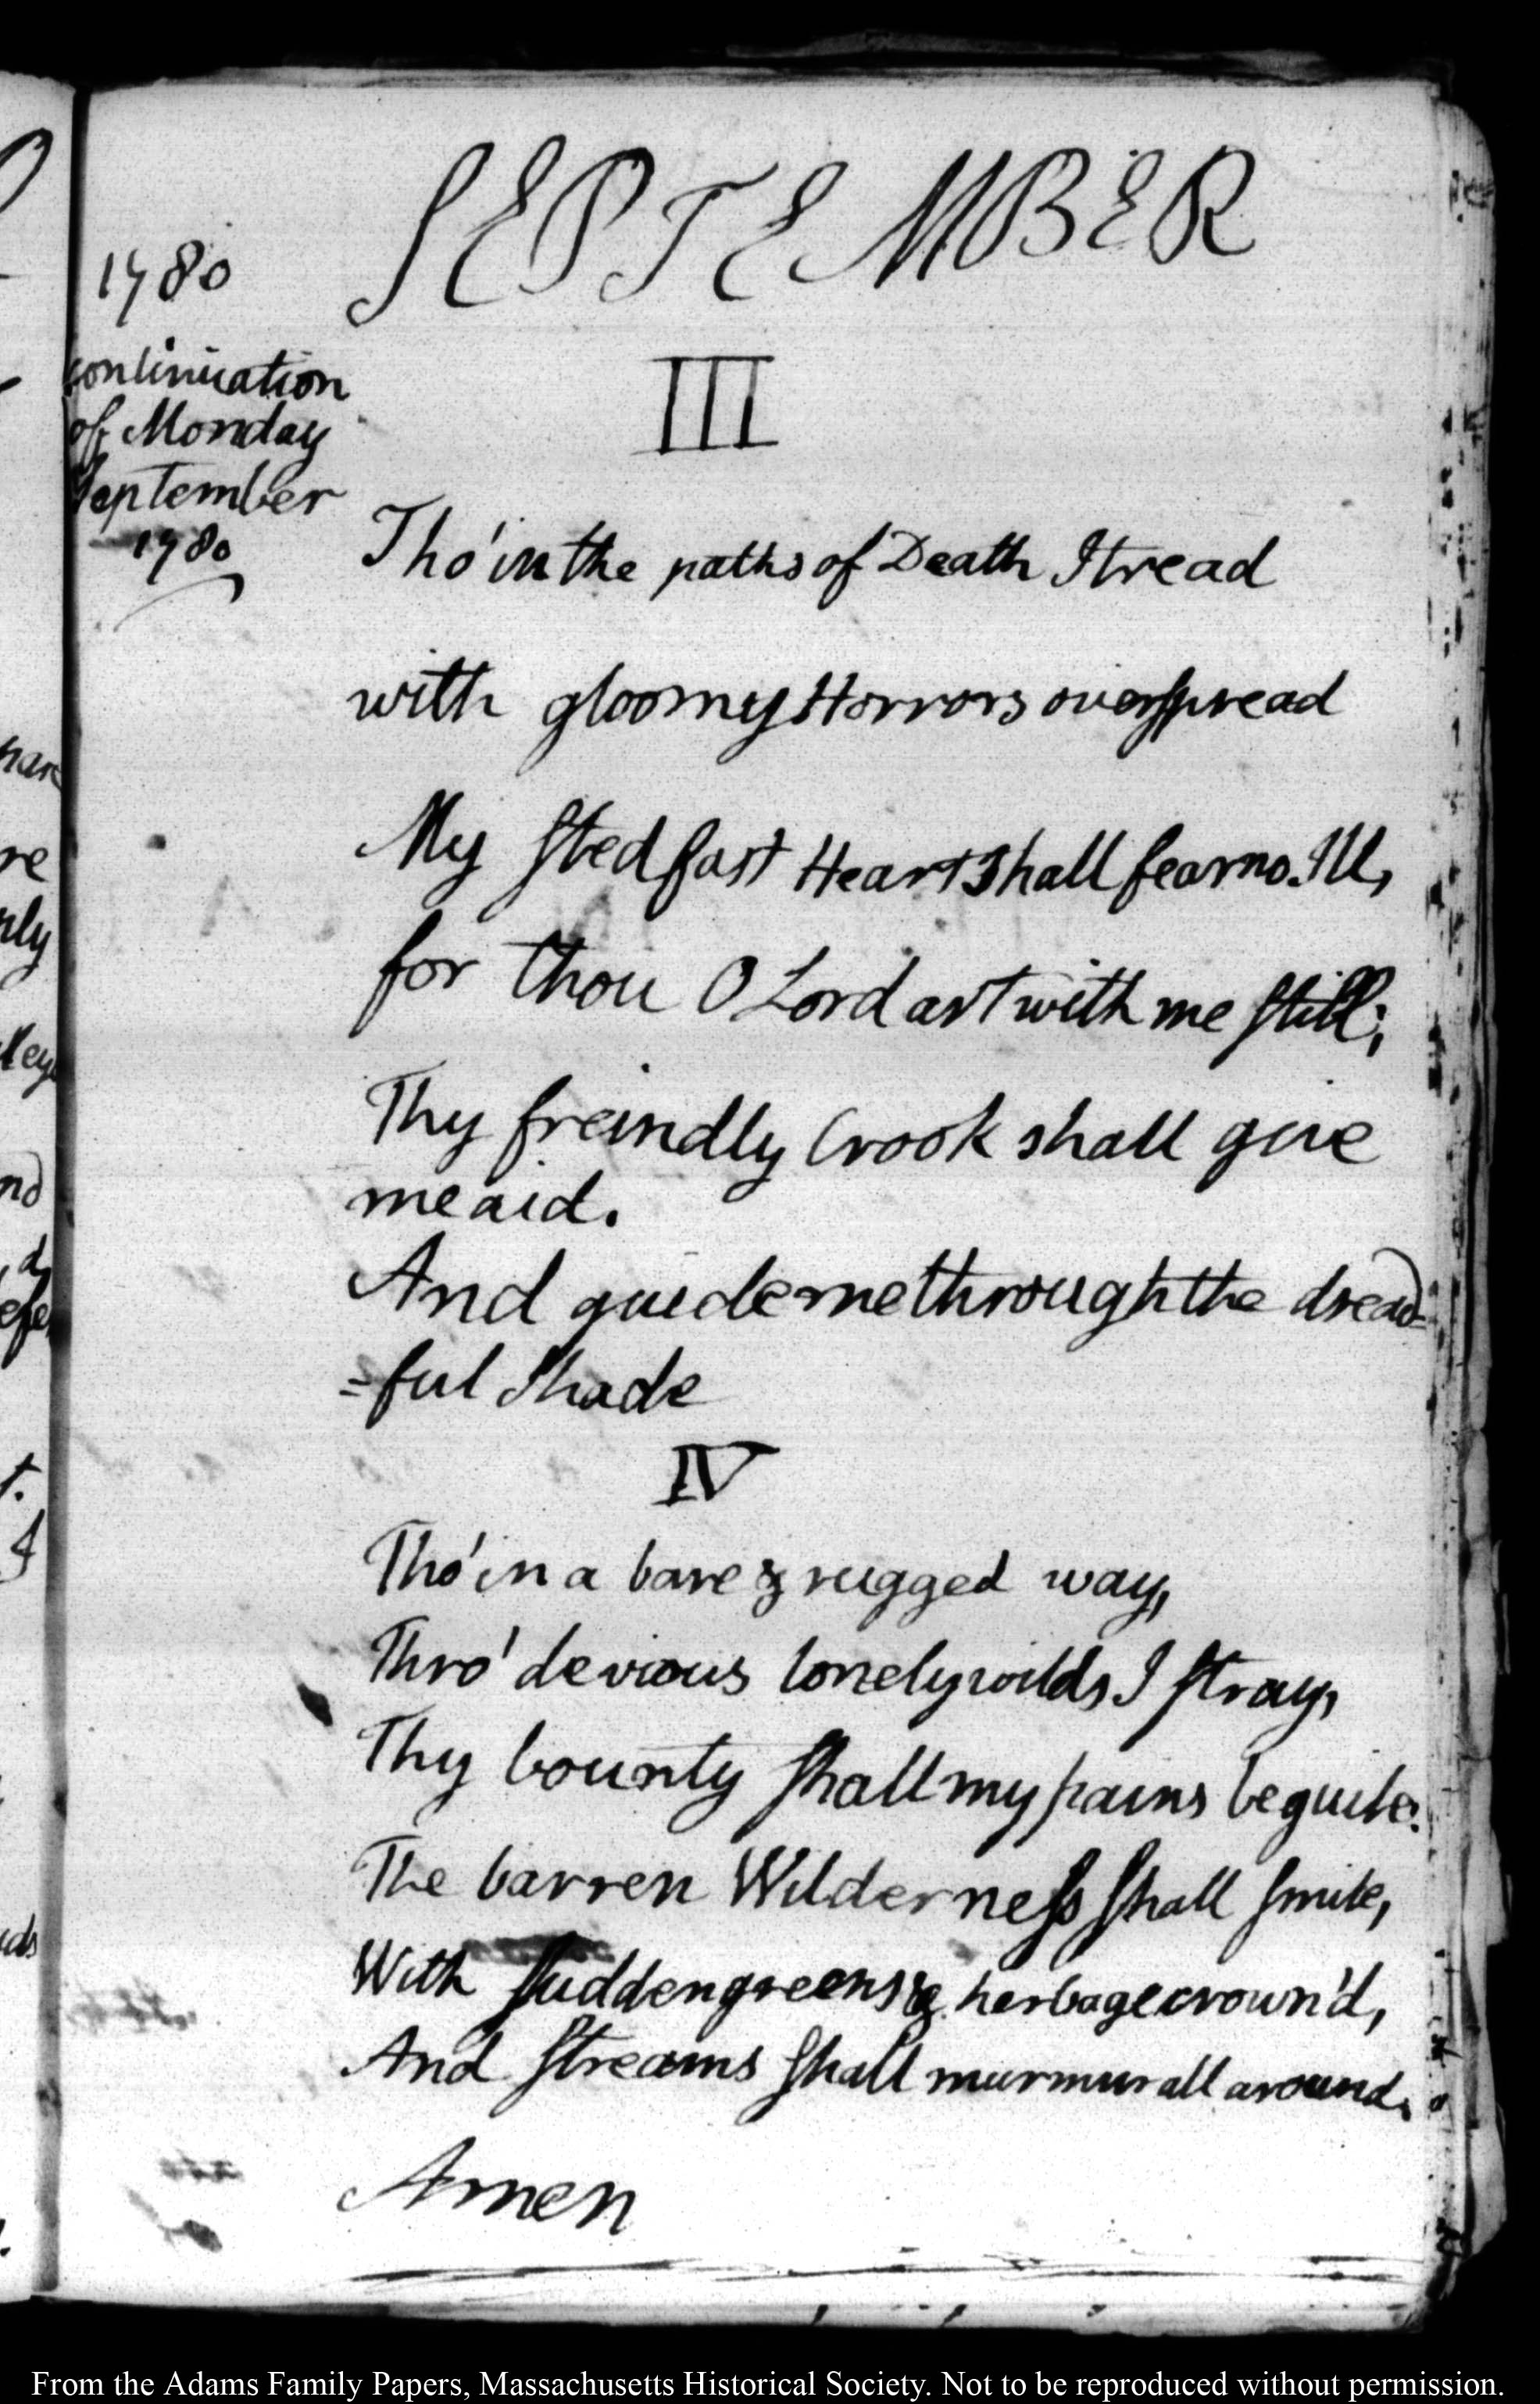 SEPTEMBER
1780
continuation
of Monday
September
1780
III
Tho' in the paths of Death I tread
with gloomy Horrors overspread
My stedfast Heart shall fear no Ill,
for thou O Lord art with me still;
Thy freindly Crook shall give
me aid.
And guide me through the dread=
=ful Shade
IV
Tho' in a bare & rugged way,
Thro' devious lonely wilds I stray,
Thy bounty shall my pains beguile:
The barren Wilderness shall smile,
With sudden greens & herbage crown'd,
And streams shall murmur all around.
Amen
From the Adams Family Papers, Massachusetts Historical Society. Not to be reproduced without permission.